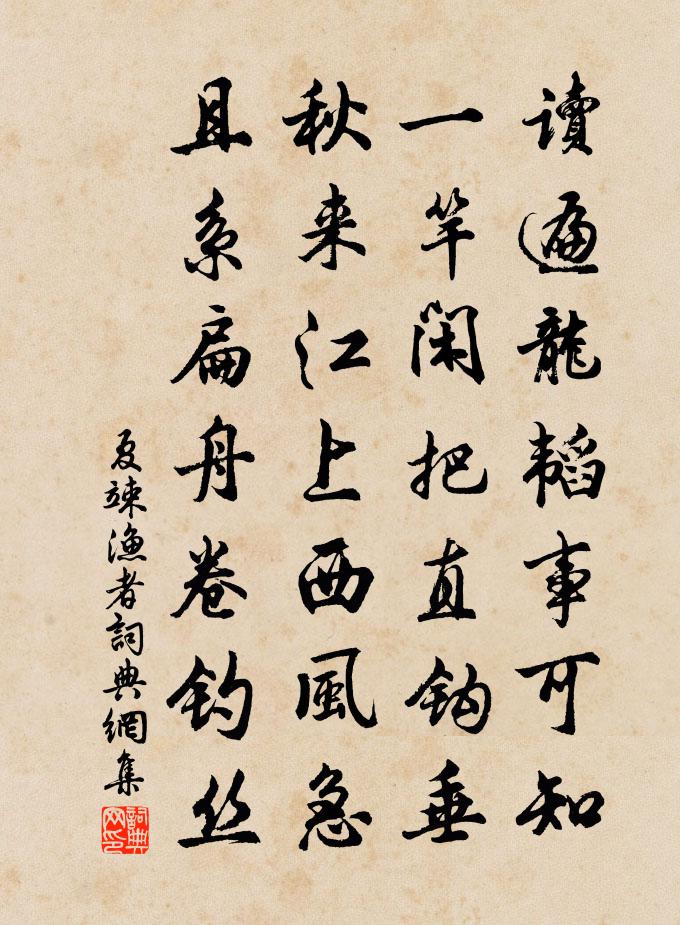 讀遍龍韜事可知
一竿閑把直鈎垂
秋来江上西風急
且系扁舟卷钓丝
夏竦漁者詞典網集
詞典
网印